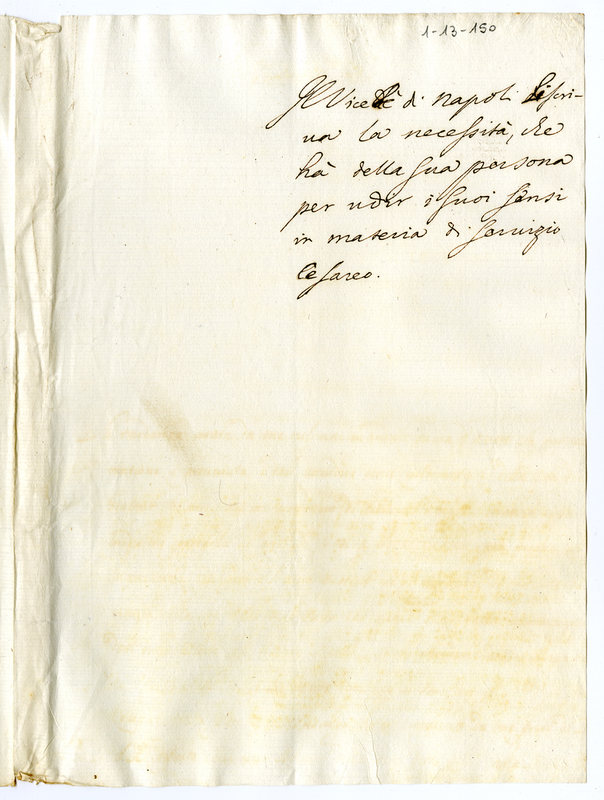 1-13-150
Il ViceRè di Napoli li scri-
ua la necessità, che
hà della sua persona
per udir i suoi sensi
in materia di seruizio
Cesareo.